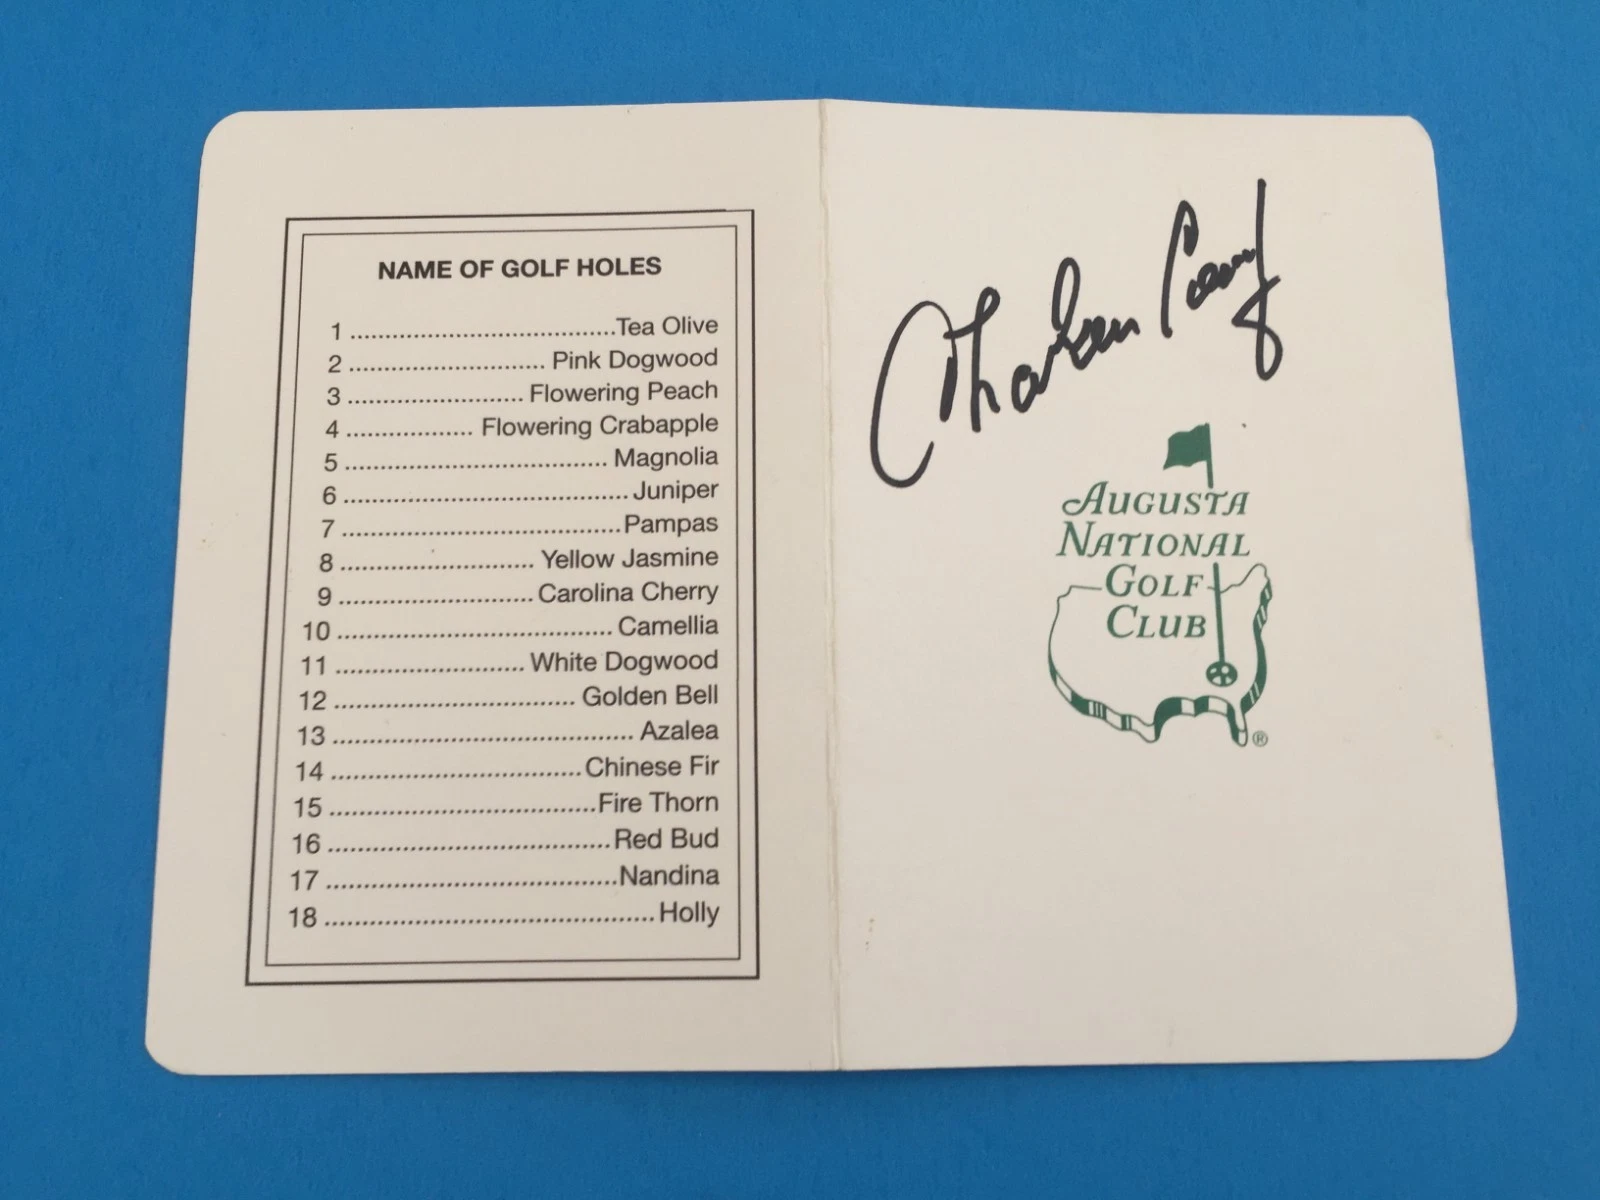 NAME OF GOLF HOLES
1 ................................Tea Olive
2 ........................ Pink Dogwood
3 ........................ Flowering Peach
4 ................. Flowering Crabapple
5 ................................... Magnolia
6 ...................................... Juniper
7 .....................................Pampas
8 .......................... Yellow Jasmine
9 .......................... Carolina Cherry
10 ..................................... Camellia
11 .......................... White Dogwood
12 ................................. Golden Bell
13 ......................................... Azalea
14 ..................................Chinese Fir
15 ....................................Fire Thorn
16 ......................................Red Bud
17 .......................................Nandina
18 ............................................ Holly
AUGUSTA
NATIONAL
GOLF
CLUB
®